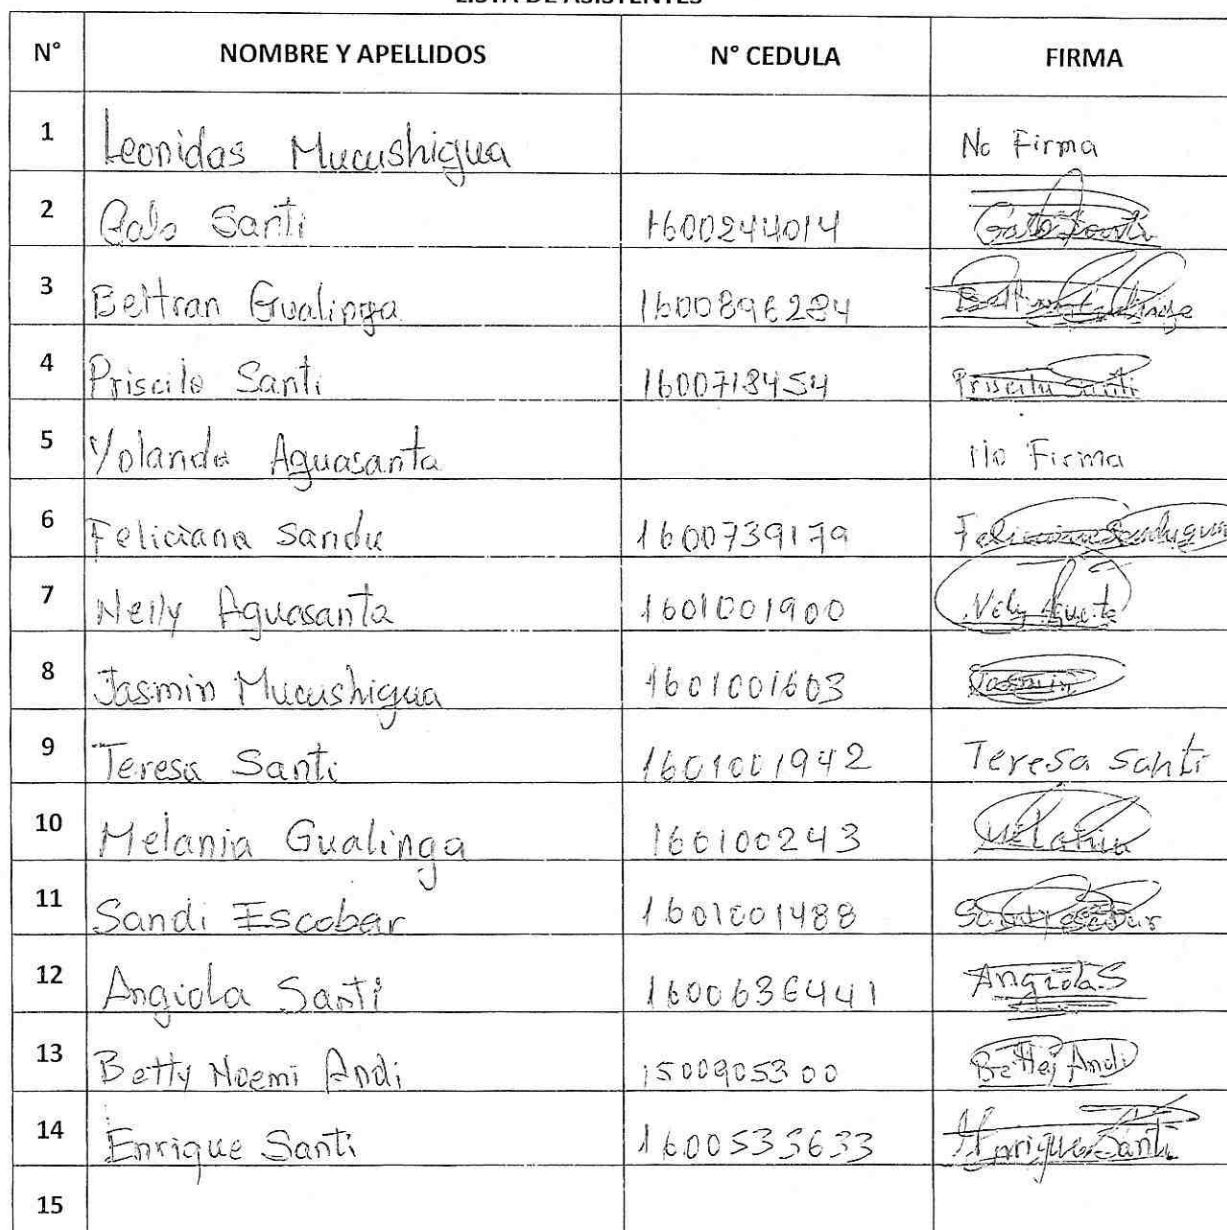 LISTA DE ASISTENTES
N° NOMBRE Y APELLIDOS N° CEDULA FIRMA
1 Leonidas Mucushigua No Firma
2 Galo Santi 1600244014 Galo Santi
3 Beltran Gualinga 1600896284 Beltran Gualinga
4 Priscila Santi 1600718454 Priscila Santi
5 Yolanda Aguasanta No Firma
6 Feliciana Sandu 1600739179 Feliciana
7 Nelly Aguasanta 1601001900 Nely
8 Jasmin Mucushigua 1601001603 Jasmin
9 Teresa Santi 1601001942 Teresa Santi
10 Melania Gualinga 160100243 Melania
11 Sandi Escobar 1601001488 Sandy Escobar
12 Angiola Santi 1600636441 Angiola S
13 Betty Noemi Andi 1500905300 Andi
14 Enrique Santi 1600535633 Enrique Santi
15